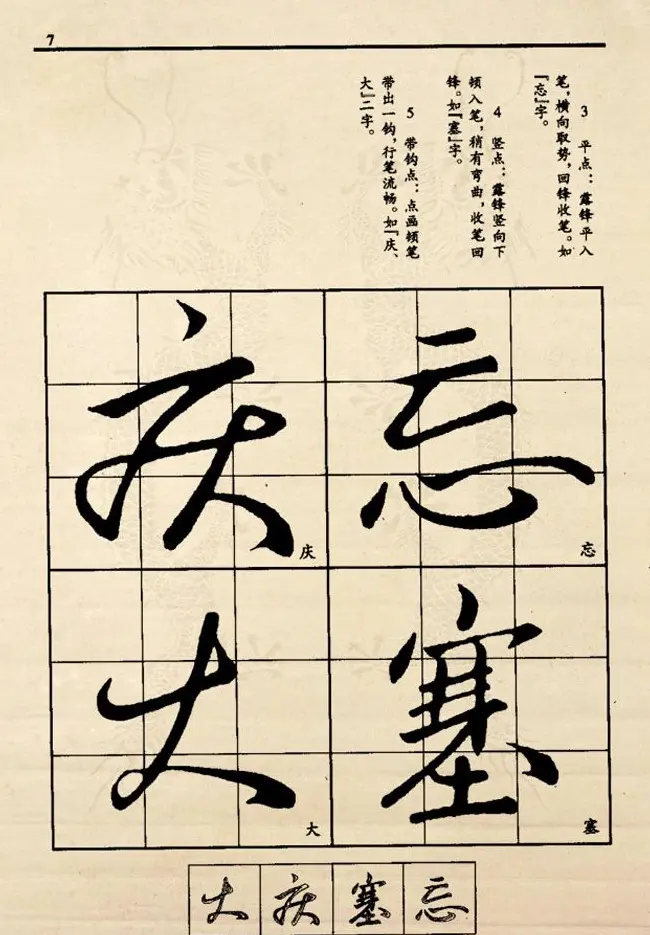 7
3 平点：露锋平入
笔，横向取势，回锋收笔。如
『忘』字。
4 竖点：露锋竖向下
顿入笔，稍有弯曲，收笔回
锋。如『塞』字。
5 带钩点：点画顿笔
带出一钩，行笔流畅。如『庆、
大』二字。
忘
忘
塞
塞
庆
庆
大
大
大 庆 塞 忘